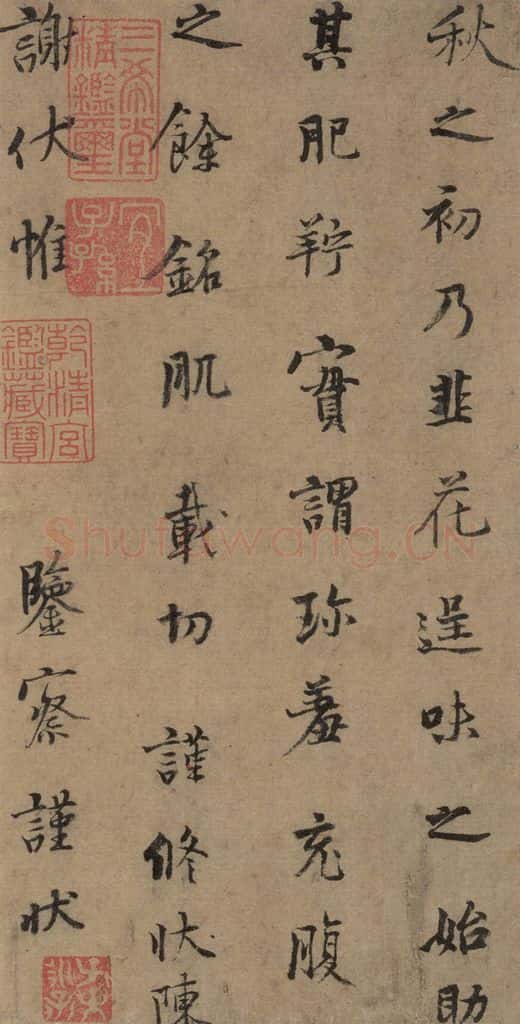 秋之初乃韭花逞味之始助
其肥羜實謂珍羞充腹
之餘銘肌載切謹修狀陳
謝伏惟鑒察謹狀
三希堂精鑑璽
宜子孫
乾清宮鑑藏寶
Shufawang.CN